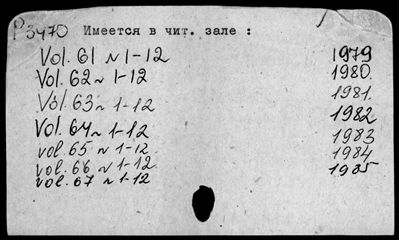 P3470 Имеется в чит. зале :
Vol. 61 N 1-12 1979
Vol. 62 N 1-12 1980.
Vol. 63 N 1-12 1981.
Vol. 64 N 1-12 1982
vol. 65 N 1-12 1983
vol. 66 N 1-12. 1984
vol. 67 N 1-12 1985